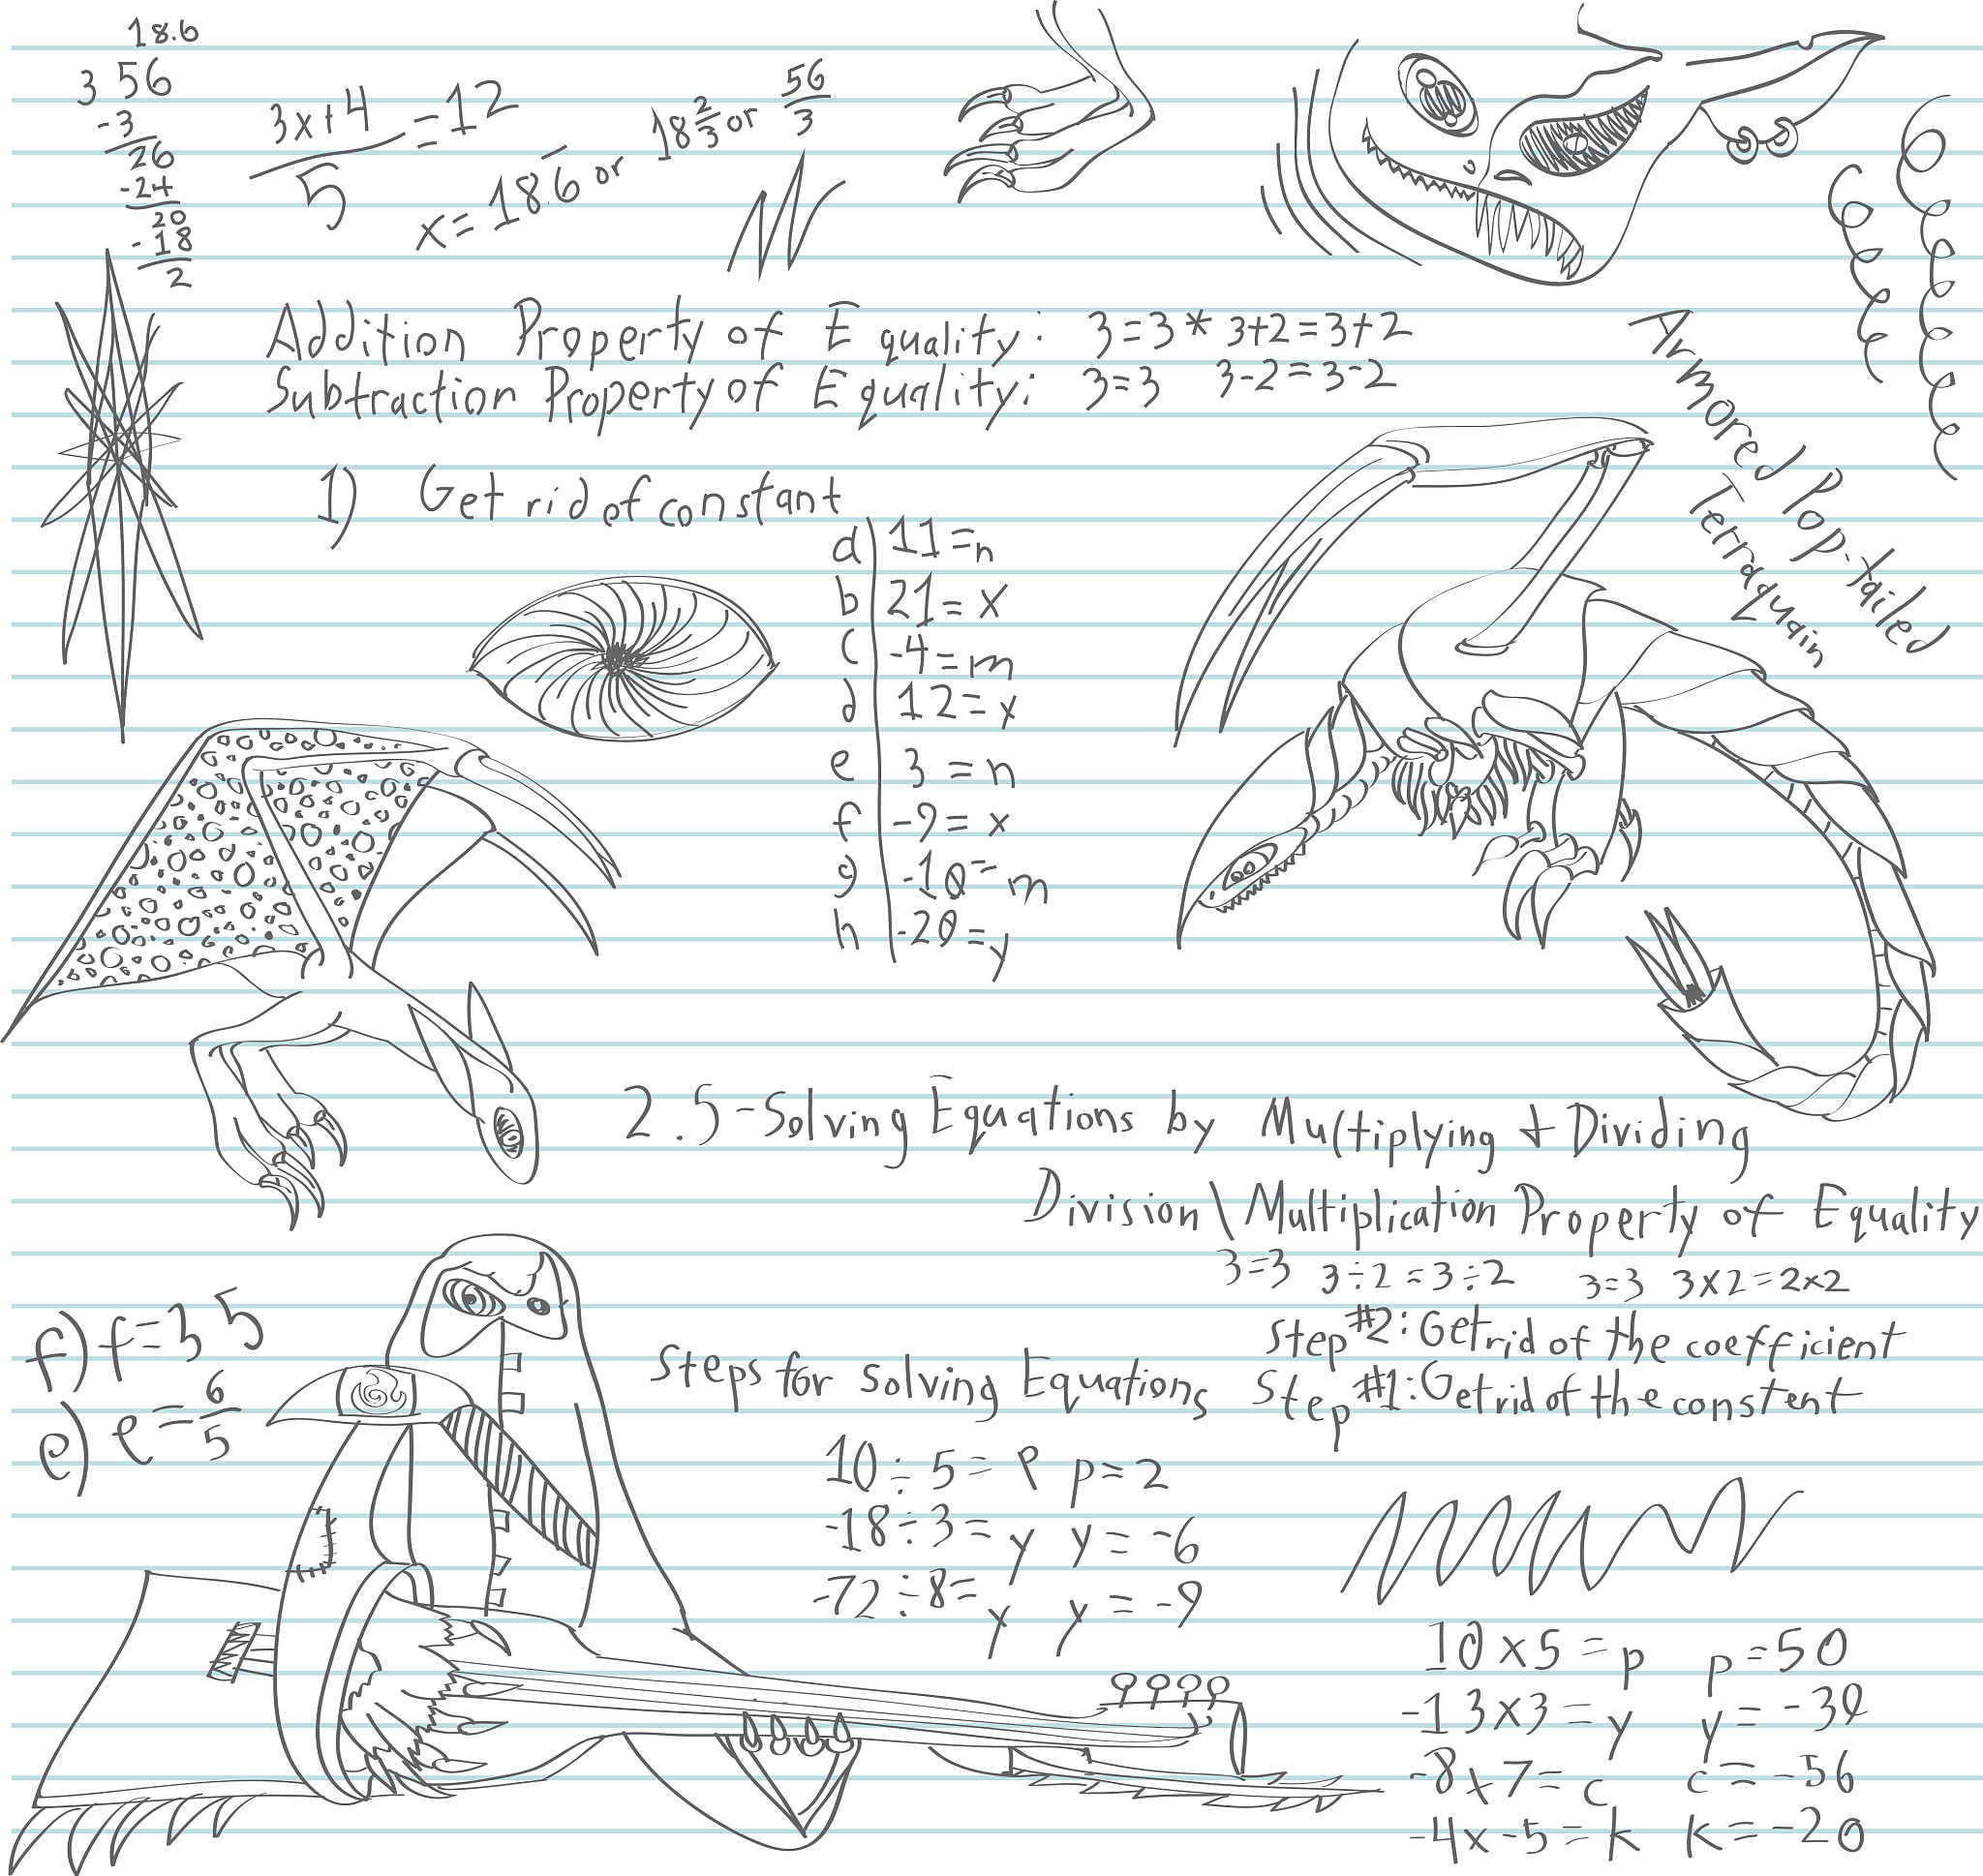 18.6
3 56
-3
26
-24
20
-18
2
3x+4 = 12
5
x = 18.6̅ or 18 2/3 or 56/3
Addition Property of Equality: 3=3 * 3+2=3+2
Subtraction Property of Equality: 3=3 3-2=3-2
1) Get rid of constant
Armored Pop-tailed
Terraquain
d 11=n
b 21=x
c -4=m
d 12=x
e 3=n
f -9=x
g -10=m
h -20=y
2.5-Solving Equations by Multiplying + Dividing
Division\Multiplication Property of Equality
3=3 3÷2=3÷2 3=3 3x2=2x2
f) f=35
e) e=6/5
Steps for Solving Equations
Step #2: Get rid of the coefficient
Step #1: Get rid of the constent
10÷5=p p=2
-18÷3=y y=-6
-72÷8=y y=-9
10x5=p p=50
-13x3=y y=-39
-8x7=c c=-56
-4x-5=k k=-20